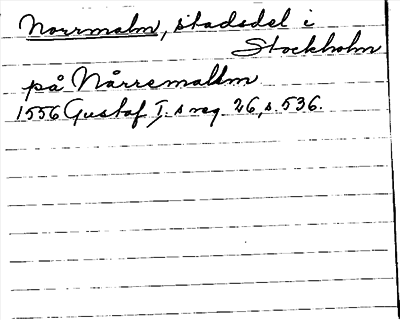 Norrmalm, stadsdel i
Stockholm
på Nårremalm
1556 Gustaf I.s reg. 26, s. 536.